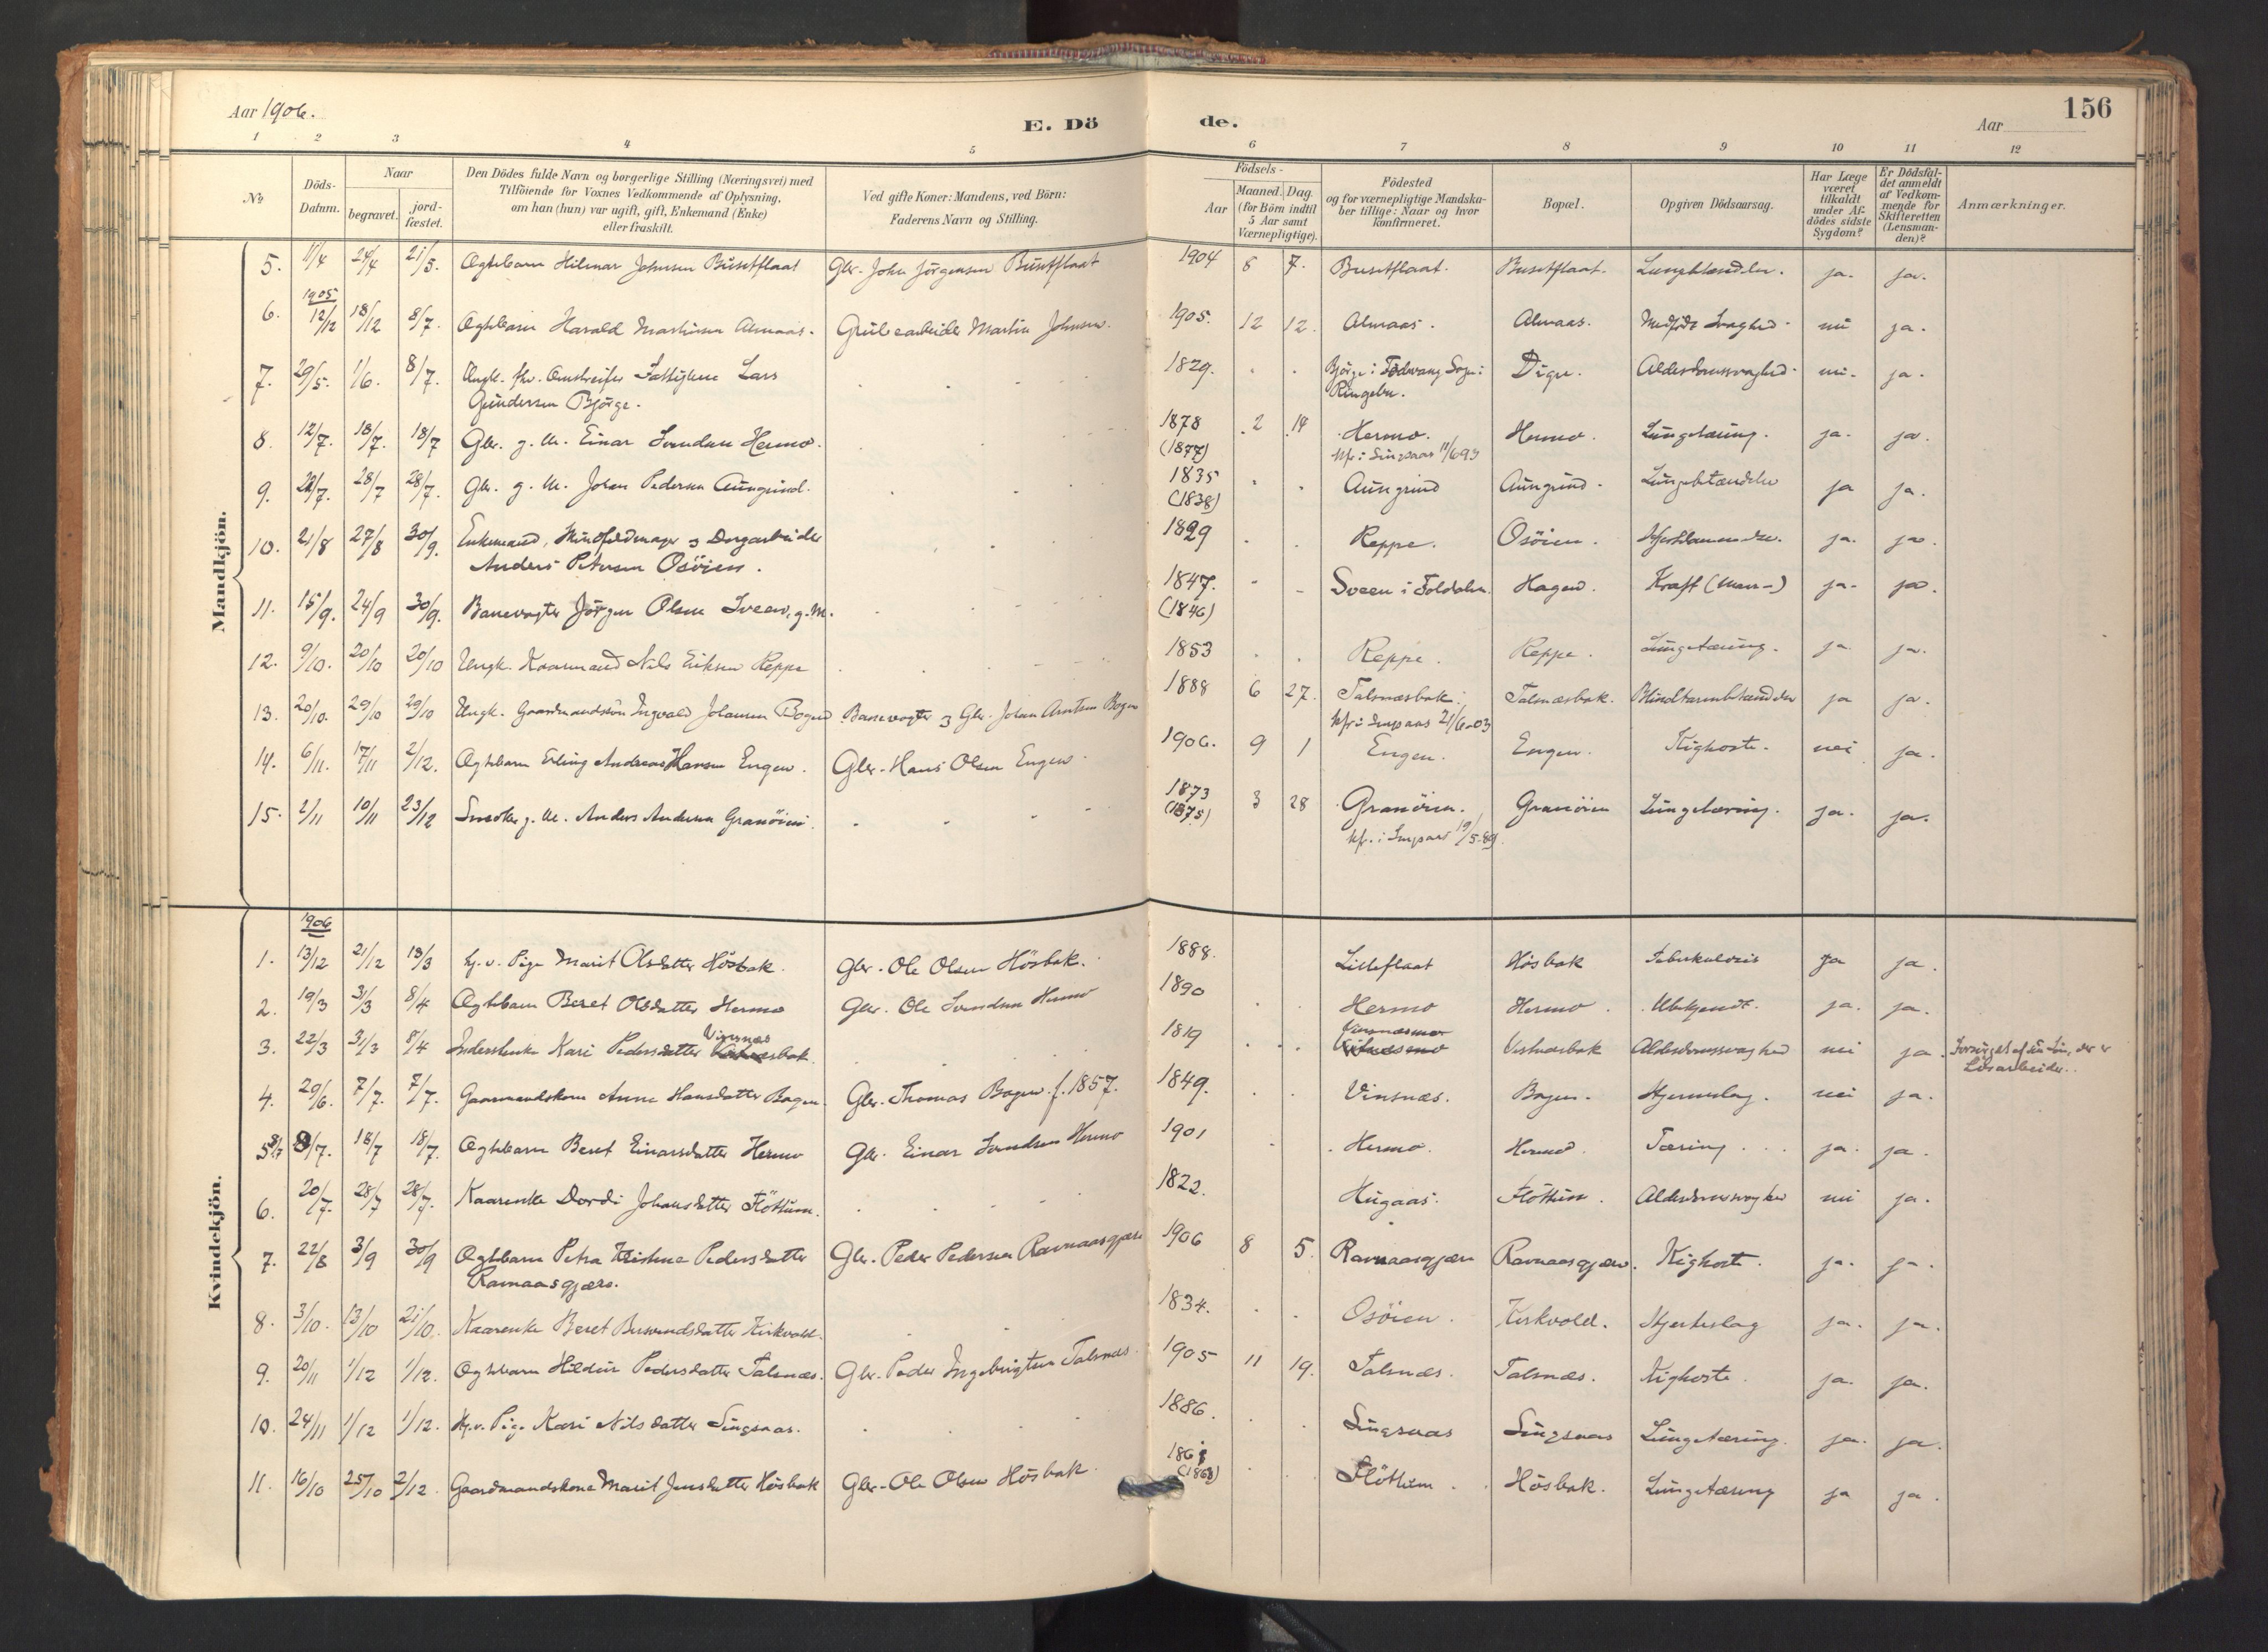 Aar 1906.
E. Dö
de.
Aar
156
1 2 3 4 5 6 7 8 9 10 11 12
№
Döds-
Datum.
Naar
begravet.
jord-
fæstet.
Den Dödes fulde Navn og borgerlige Stilling (Næringsvei) med
Tilföiende for Voxnes Vedkommende af Oplysning,
om han (hun) var ugift, gift, Enkemand (Enke)
eller fraskilt.
Ved gifte Koner: Mandens, ved Börn:
Faderens Navn og Stilling.
Födsels-
Aar
Maaned. Dag.
(for Börn indtil
5 Aar samt
Værnepligtige).
Födested
og for værnepligtige Mandska-
ber tillige: Naar og hvor
konfirmeret.
Bopæl.
Opgiven Dödsaarsag.
Har Læge
været
tilkaldt
under Af-
dödes sidste
Sygdom?
Er Dödsfal-
det anmeldt
af Vedkom-
mende for
Skifteretten
(Lensman-
den)?
Anmærkninger.
Mandkjön.
5. 11/4 24/4 21/5. Ægtebarn Hilmar Johnsen Busetflaat Gbr. John Jörgensen Busetflaat 1904 8 7. Busetflaat. Busetflaat. Lungebtændelse. ja. ja.
1905
6. 12/12 18/12 8/7. Ægtebarn Harald Martinsen Almaas. Grubearbeider Martin Johnsen. 1905. 12 12. Almaas. Almaas. Medfödt Svaghed nei ja.
7. 29/5. 1/6. 8/7. Ungk. fhv. Omstreifer Fattiglem Lars 1829. Björge i Fodvang Sogn i Digre. Alderdomssvaghed nei. ja.
Gundersen Björge. Ringebu.
8. 12/7. 18/7. 18/7 Gbr. g. M. Einar Svendsen Hermo. 1878 2 14 Hermo. Hermo. Lungetæring. ja. ja.
(1877) kfr. i Singsaas 11/6 93
9. 21/7. 28/7 28/7. Gbr. g. M. Johan Pedersen Aungrind. 1835 Aungrind Aungrind. Lungebtændelse ja ja.
(1838)
10. 21/8 27/8 30/9. Enkemand, Skindfeldmager og Dagarbeider 1829 Reppe. Osöien. ja. ja.
Anders Petersen Osöien.
11. 15/9. 24/9 30/9. Banevogter Jörgen Olsen Sveen, g. M. 1847. Sveen i Foldalen. Hagen. Kræft (Mave-) ja. ja.
(1846)
12. 9/10. 20/10 20/10 Ungk. Kaarmand Nils Eriksen Reppe 1853 Reppe. Reppe. Lungetæring. ja ja.
13. 20/10. 29/10 29/10 Ungk. Gaardmandssön Ingvald Johansen Bogen Banevogter og Gbr. Johan Arntsen Bogen 1888 6 27. Talsnæsbak. Talsnæsbak. Blindtarmbetændelse ja ja.
kfr. i Singsaas 21/6-03
14. 6/11. 17/11 2/12. Ægtebarn Erling Andreas Hansen Engen. Gbr. Hans Olsen Engen. 1906. 9 1 Engen. Engen. Kighoste. nei ja.
15. 2/11 10/11 23/12 Snedker g. M. Anders Andersen Granöien. 1873 3 28 Granöien. Granöien Lungetæring. ja. ja.
(1875) kfr. i Singsaas 19/5-89.
Kvindekjön.
1906
1. 13/12 21/12 18/3 hj. v. Pige Marit Olsdatter Hösbak. Gbr. Ole Olsen Hösbak. 1888. Lilleflaat Hösbak Tuberkulosis ja ja.
2. 19/3 31/3 8/4 Ægtebarn Beret Olsdatter Hermo Gbr. Ole Svendsen Hermo 1890 Hermo Hermo. Ubekjendt. ja. ja.
Vinsnæs Vinsnæsmo
3. 22/3 31/3 8/4 Inderstenke Kari Pedersdatter 1819 Vestnæsbak Alderdomssvaghed nei ja. Forsörget af sin Sön, der er
Lösarbeider.
4. 29/6. 7/7. 7/7. Gaarmandskone Anne Hansdatter Bogen. Gbr. Thomas Bogen f. 1857. 1849. Vinsnæs. Bogen. Hjerneslag. nei ja.
5. 8/7 8/7. 18/7 18/7. Ægtebarn Beret Einarsdatter Hermo Gbr. Einar Svendsen Hermo 1901 Hermo. Hermo. Tæring. ja. ja.
6. 20/7. 28/7 28/7. Kaarenke Dordi Johansdatter Flöttum. 1822. Hugaas. Flöttum. Alderdomssvaghed nei ja.
7. 22/8 3/9 30/9 Ægtebarn Petra Kristine Pedersdatter Gbr. Peder Pedersen Ravnaasgjære 1906 8 5. Ravnaasgjære Ravnaasgjære. Kighoste. ja. ja.
Ravnaasgjære.
8. 3/10. 13/10 21/10. Kaarenke Beret Bersvendsdatter Kirkvold. 1834. Osöien. Kirkvold. Hjerteslag ja. ja.
9. 20/11 1/12 1/12. Ægtebarn Hildur Pedersdatter Talsnæs. Gbr. Peder Ingebrigtsen Talsnæs. 1905 11 19. Talsnæs. Talsnæs. Kighoste. ja. ja.
10. 24/11 1/12 1/12. Hj. v. Pige Kari Nilsdatter Singsaas. 1886. Singsaas Singsaas Lungetæring. ja. ja.
11. 16/10 25/10 2/12. Gaardmandskone Marit Jensdatter Hösbak Gbr. Ole Olsen Hösbak. (1868) Flöttum. Hösbak. Lungetæring ja ja.